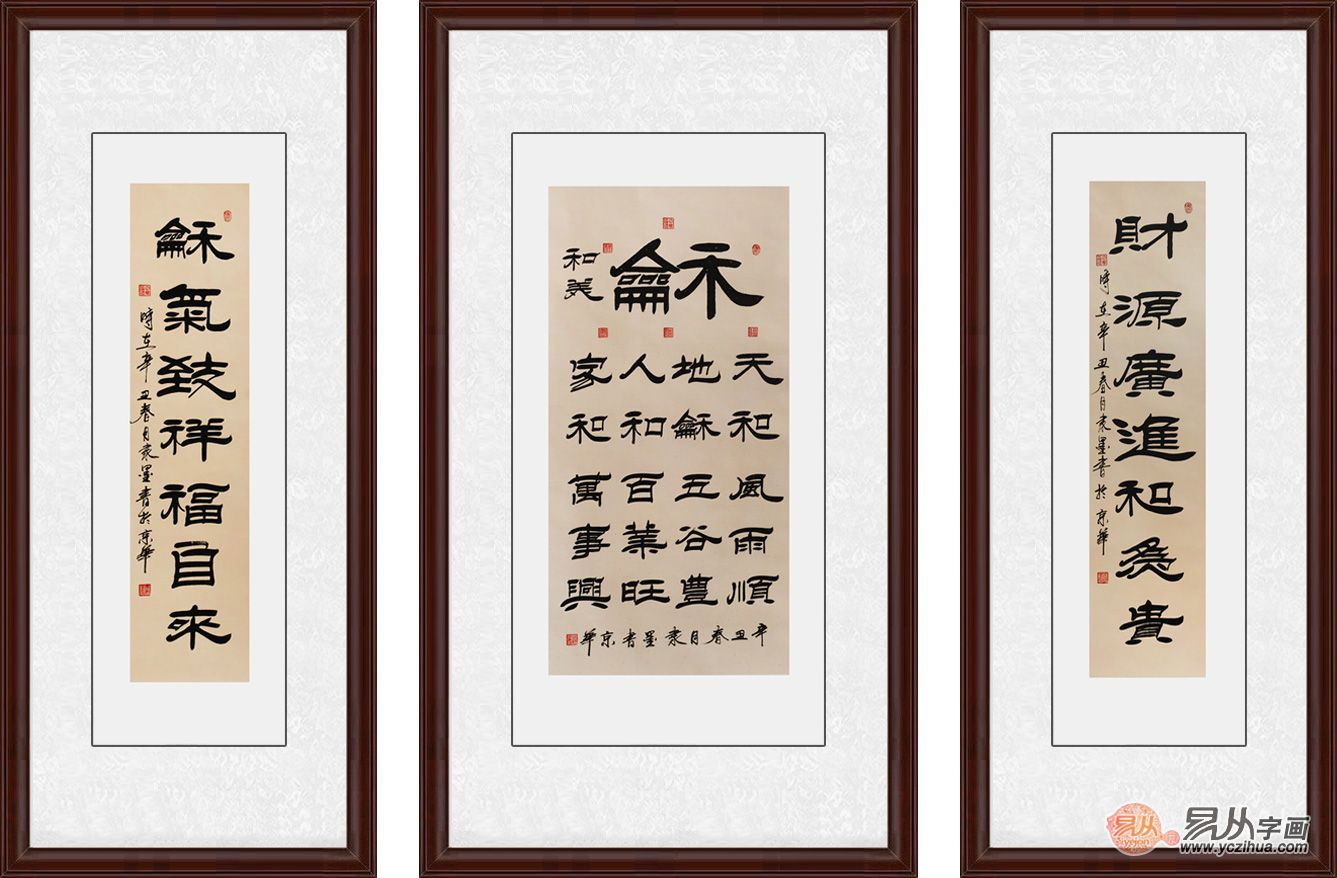 財源廣進和為貴
時在辛丑春月袁墨書於京華
龢
和美
天和風雨順
地龢五谷豐
人和百業旺
家和萬事興
辛丑春月袁墨書京華
龢氣致祥福自來
時在辛丑春月袁墨書於京華
易从字画
www.yczihua.com